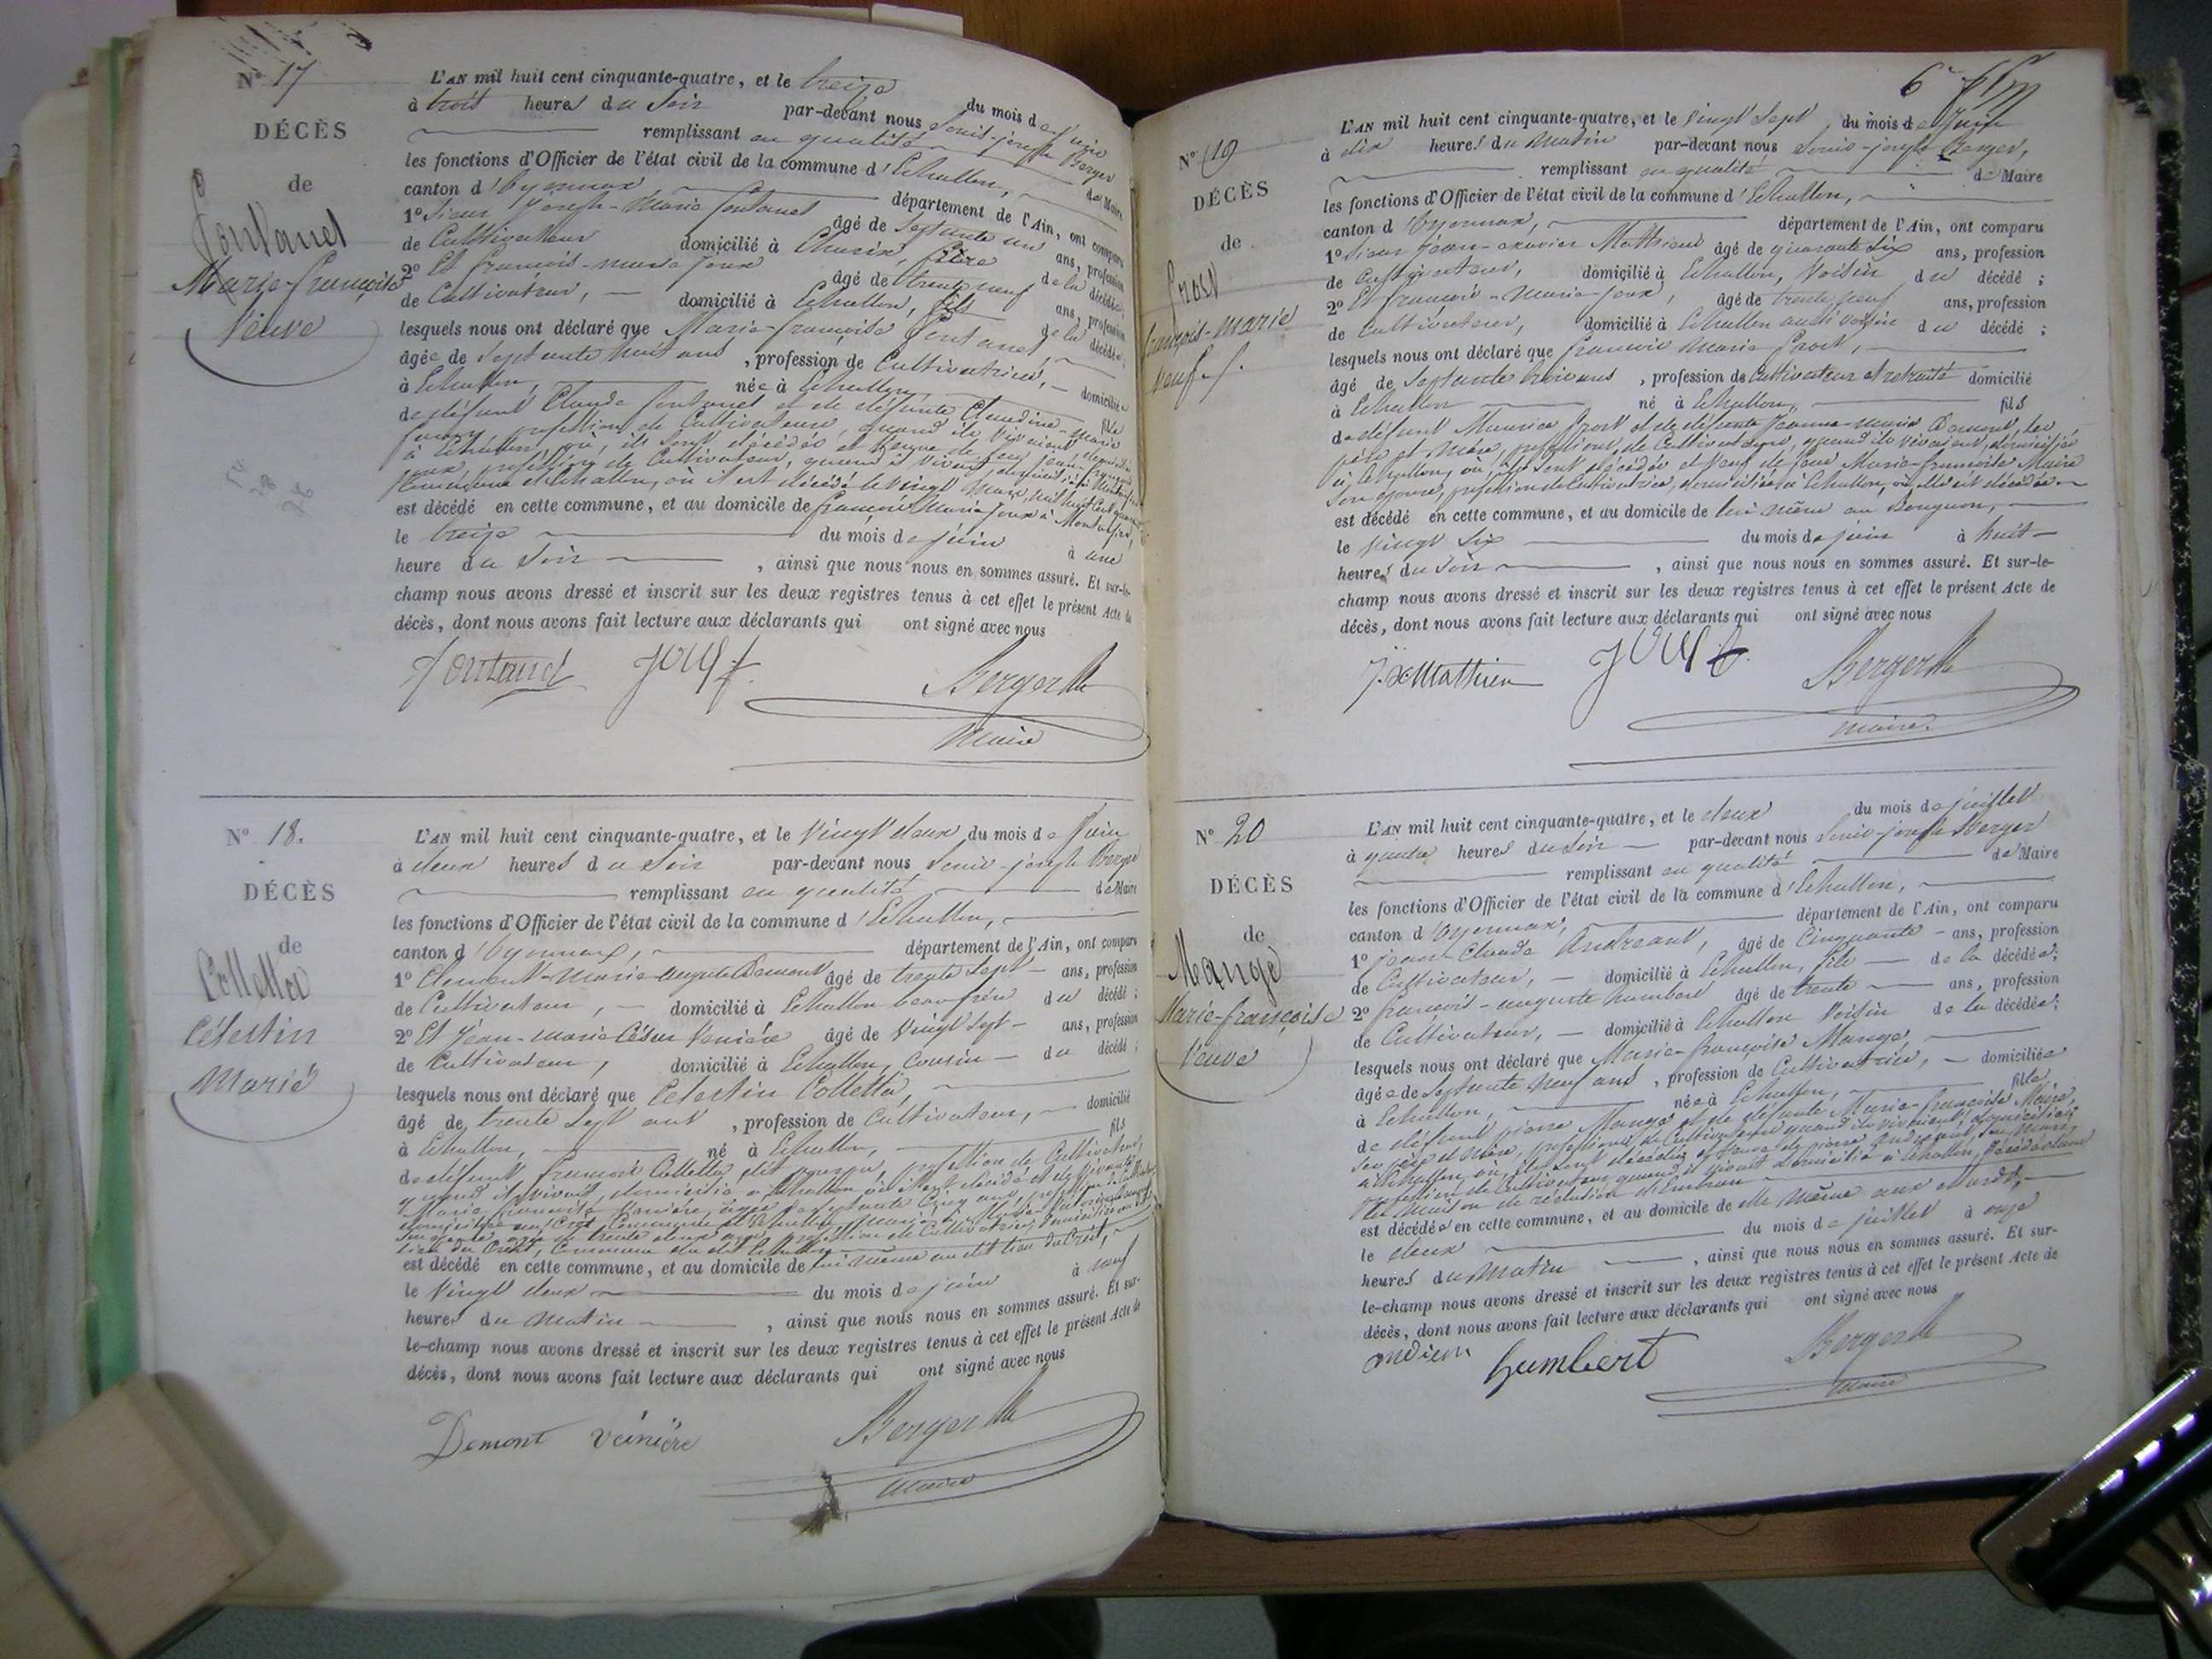 N° 17
DÉCÈS
de
Fontanel
Marie-françoise
Veuve
L'AN mil huit cent cinquante-quatre, et le treize du mois de juin
à trois heures du Soir par-devant nous Louis-joseph Berger
remplissant en qualité de Maire
les fonctions d'Officier de l'état civil de la commune d'Echallon,
canton d'Oyonnax, département de l'Ain, ont comparu
1° Sieur Joseph-Marie fontanel âgé de Septante un ans, profession
de Cultivateur domicilié à Charix, frère de la décédée;
2° Et francois-marie Joux âgé de trente neuf ans, profession
de Cultivateur, domicilié à Echallon, fils de la décédée;
lesquels nous ont déclaré que Marie-françoise Fontanel,
âgée de Septante huit ans, profession de Cultivatrice, domiciliée
à Echallon, née à Echallon, fille
de défunt Claude fontanel et de défunte Claudine-Marie
profession de Cultivateurs, quand ils vivaient, domiciliés
à Echallon où, ils sont décédés et Veuve de feu Jean
Joux, profession de Cultivateur, quand il vivait, domicilié à
Commune d'Echallon, où il est décédé le vingt Mars, mil huit cent
est décédé en cette commune, et au domicile de françois Marie Joux à
le treize du mois de juin à une
heure du Soir, ainsi que nous nous en sommes assuré. Et sur-le-
champ nous avons dressé et inscrit sur les deux registres tenus à cet effet le présent Acte de
décès, dont nous avons fait lecture aux déclarants qui ont signé avec nous
Fontanel Joux f. Berger
Maire
N° 18.
DÉCÈS
de
Colletta
Célestin
Marié
L'AN mil huit cent cinquante-quatre, et le Vingt deux du mois de Juin
à deux heures du Soir par-devant nous Louis-joseph Berger
remplissant en qualité de Maire
les fonctions d'Officier de l'état civil de la commune d'Echallon,
canton d'Oyonnax, département de l'Ain, ont comparu
1° Clement-Marie-auguste Demont âgé de trente Sept ans, profession
de Cultivateur, domicilié à Echallon beau-frère du décédé;
2° Et Jean-Marie César Venière âgé de Vingt Sept ans, profession
de Cultivateur, domicilié à Echallon, Cousin du décédé;
lesquels nous ont déclaré que Célestin Colletta,
âgé de trente Sept ans, profession de Cultivateur, domicilié
à Echallon, né à Echallon, fils
de défunt francois Colletta dit profession de Cultivateur,
quand il vivait, domicilié à Echallon où il est décédé et de vivante
Marie françoise Venière, âgée de Septante Cinq ans,
domiciliée au Crêt, Commune d'Echallon, Marié à Marie
âgée de trente deux ans, profession de Cultivatrice, domiciliée au
lieu du Crêt, Commune du dit Echallon
est décédé en cette commune, et au domicile de lui même au dit lieu du Crêt,
le Vingt deux du mois de juin à neuf
heures du Matin, ainsi que nous nous en sommes assuré. Et sur-
le-champ nous avons dressé et inscrit sur les deux registres tenus à cet effet le présent Acte de
décès, dont nous avons fait lecture aux déclarants qui ont signé avec nous
Demont Veinière Berger
Maire
6
N° 19
DÉCÈS
de
Prost
françois-marie
Veuf
L'AN mil huit cent cinquante-quatre, et le Vingt Sept du mois de Juin
à dix heures du Matin par-devant nous Louis-joseph Berger,
remplissant en qualité de Maire
les fonctions d'Officier de l'état civil de la commune d'Echallon,
canton d'Oyonnax, département de l'Ain, ont comparu
1° Sieur Jean-xavier Mathieu âgé de quarante Six ans, profession
de Cultivateur, domicilié à Echallon, Voisin du décédé;
2° Et françois-Marie-Joux, âgé de trente neuf ans, profession
de Cultivateur, domicilié à Echallon aussi voisin du décédé;
lesquels nous ont déclaré que francois Marie Prost,
âgé de Septante trois ans, profession de Cultivateur et retraité domicilié
à Echallon né à Echallon, fils
de défunt Maurice Prost et de défunte Jeanne-marie Demont, ses
père et mère, professions de Cultivateurs, quand ils vivaient, domiciliés
à Echallon, où, ils sont décédés et Veuf de feue Marie-françoise Maire
Son épouse, profession de Cultivatrice, domiciliée à Echallon, où elle est décédée
est décédé en cette commune, et au domicile de lui même au
le Vingt Six du mois de juin à huit
heures du Soir, ainsi que nous nous en sommes assuré. Et sur-le-
champ nous avons dressé et inscrit sur les deux registres tenus à cet effet le présent Acte de
décès, dont nous avons fait lecture aux déclarants qui ont signé avec nous
J. X Mathieu Joux f. Berger
Maire
N° 20
DÉCÈS
de
Mange
Marie-françoise
Veuve
L'AN mil huit cent cinquante-quatre, et le deux du mois de juillet
à quatre heures du Soir par-devant nous Louis-joseph Berger
remplissant en qualité de Maire
les fonctions d'Officier de l'état civil de la commune d'Echallon,
canton d'Oyonnax, département de l'Ain, ont comparu
1° jean-Claude Andréant, âgé de Cinquante ans, profession
de Cultivateur, domicilié à Echallon, fils de la décédée;
2° francois-auguste humbert âgé de trente ans, profession
de Cultivateur, domicilié à Echallon Voisin de la décédée;
lesquels nous ont déclaré que Marie-françoise Mange,
âgée de Septante neuf ans, profession de Cultivatrice, domiciliée
à Echallon, née à Echallon, fille
de défunt pierre Mange et de défunte Marie-françoise Maire,
ses père et mère, professions de Cultivateurs quand ils vivaient, domiciliés
à Echallon, où, ils sont décédés et Veuve de pierre Andréant, son mari,
profession de Cultivateur quand il vivait domicilié à Echallon, décédé dans
la Maison de réclusion d'Embrun
est décédée en cette commune, et au domicile de elle même aux
le deux du mois de juillet à onze
heures du Matin, ainsi que nous nous en sommes assuré. Et sur-
le-champ nous avons dressé et inscrit sur les deux registres tenus à cet effet le présent Acte de
décès, dont nous avons fait lecture aux déclarants qui ont signé avec nous
humbert Berger
Maire